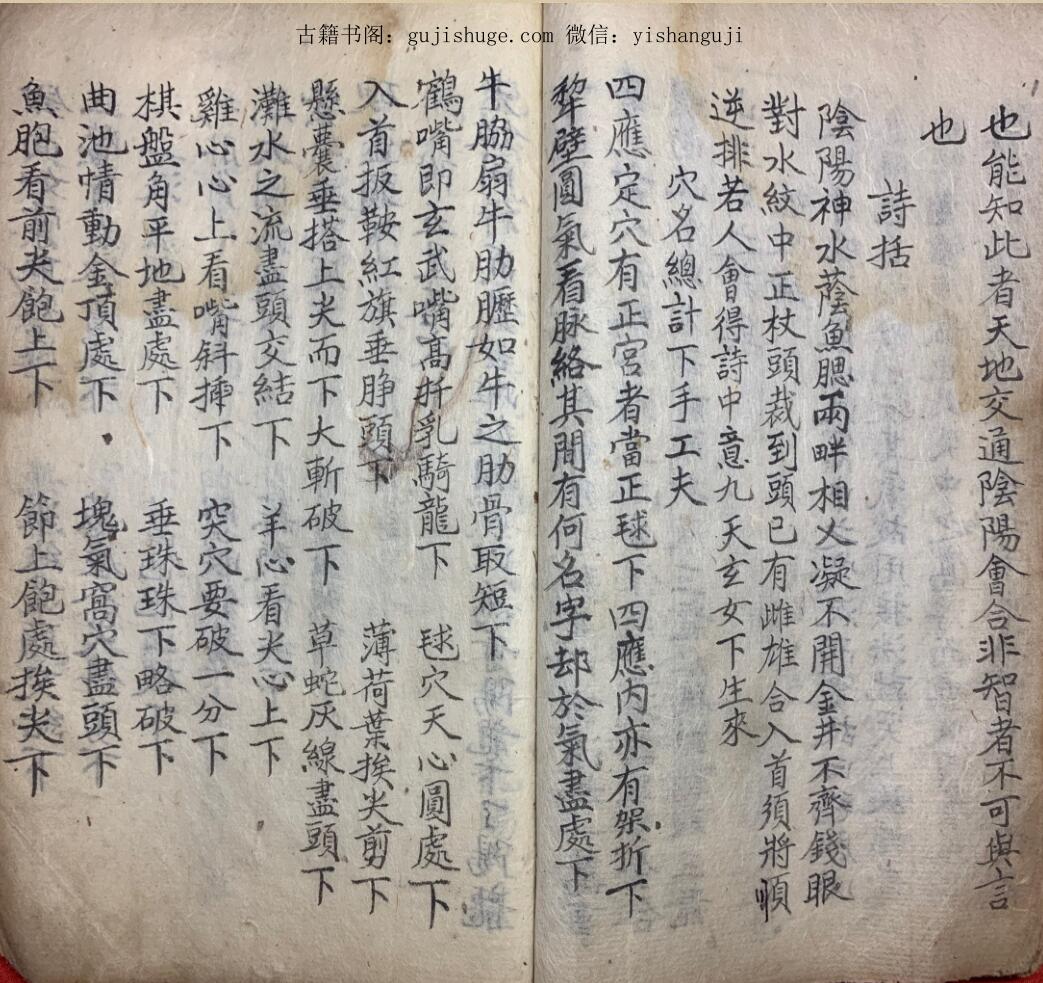 古籍书阁：gujishuge.com 微信：yishanguji
也能知此者天地交通陰陽會合非智者不可與言
也
詩括
陰陽神水蔭魚腮兩畔相乂凝不開金井不齊錢眼
對水紋中正杖頭裁到頭已有雌雄合入首須將順
逆排若人會得詩中意九天玄女下生來
穴名總計下手工夫
四應定穴有正宮者當正毬下四應內亦有架折下
犂壁圓氣看脉絡其間有何名字却於氣盡處下
牛脇扇牛肋臁如牛之肋骨取短下
鶴嘴即玄武嘴高扦乳騎龍下 毬穴天心圓處下
入首扳鞍紅旗垂脖頭下 薄荷葉挨尖剪下
懸囊垂搭上尖而下大斬破下 草蛇灰線盡頭下
灘水之流盡頭交結下 羊心看尖心上下
雞心心上看嘴斜下 突穴要破一分下
棋盤角平地盡處下 垂珠珠下略破下
曲池情動金頂處下 塊氣窩穴盡頭下
魚胞看前尖飽上下 節上飽處挨尖下